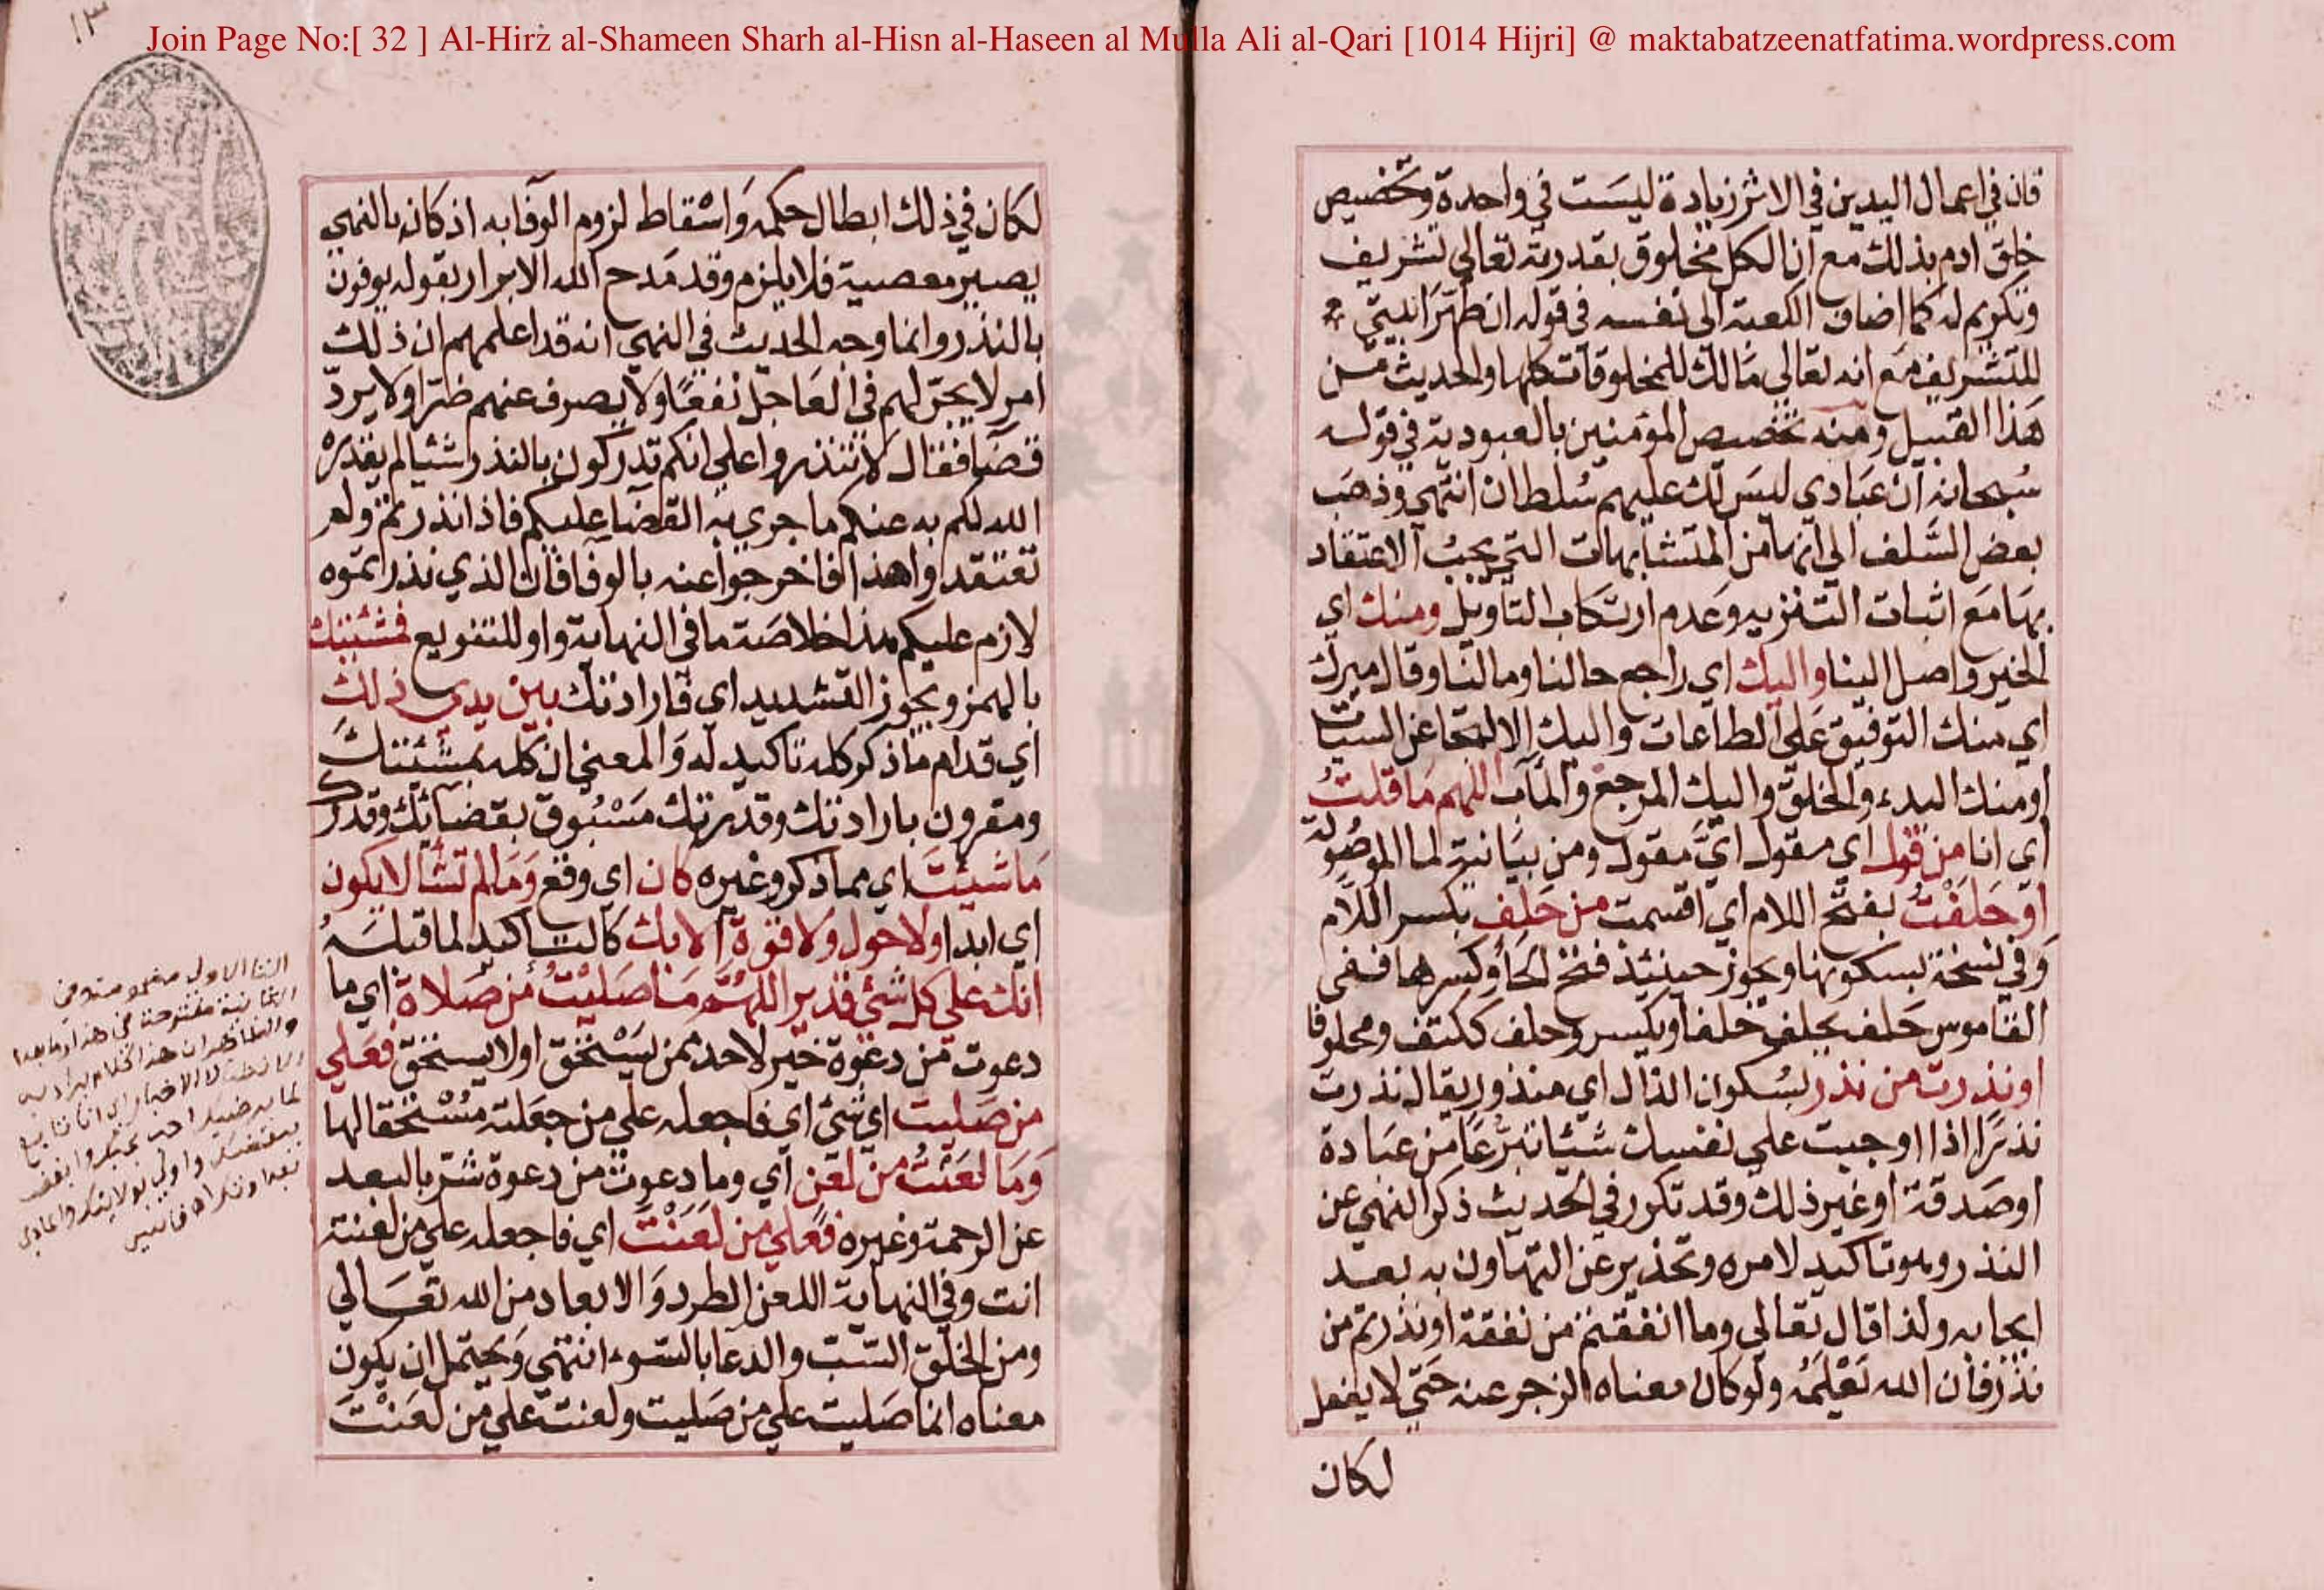 Join Page No:[ 32 ] Al-Hirz al-Shameen Sharh al-Hisn al-Haseen al Mulla Ali al-Qari [1014 Hijri] @ maktabatzeenatfatima.wordpress.com
١٣
فان في اعمال اليدين في الاثر زيادة ليست في واحدة وتخصيص
خلق ادم بذلك مع ان الكل مخلوق بقدرته تعالي تشريف
وتكريم له كما اضاف الكعبة الى نفسه في قوله ان طهرا بيتي
للتشريف مع انه تعالي مالك للمخلوقات كلها والحديث من
هذا القبيل ومنه تخصيص المؤمنين بالعبودية في قوله
سبحانه ان عبادي ليس لك عليهم سلطان انتهى وذهب
بعض السلف الي انها من المتشابهات التي يجب الاعتقاد
بها مع اثبات التنزيه وعدم ارتكاب التاويل ومنك اي
الخير واصل الينا واليك اي راجع حالنا ومالنا وقال ميرك
اي منك التوفيق على الطاعات واليك الالتجا عن السيات
او منك البدء والخلق واليك المرجع والمآب اللهم ما قلت
اي انا من قول اي مقول ايّ مقول ومن بيانية لما الموصولة
او حلفت بفتح اللام اي اقسمت من حلف بكسر اللام
وفي نسخة بسكونها ويجوز حينئذ فتح الحا وكسرها ففي
القاموس حلف يحلف حلفا ويكسر وحلف ككتف ومحلوفا
او نذرت من نذر بسكون الذال اي منذور يقال نذرت
نذرا اذا اوجبت علي نفسك شيئا تبرعا من عبادة
او صدقة او غير ذلك وقد تكرر في الحديث ذكر النهي عن
النذر وهو تاكيد لامره وتحذير عن التهاون به بعد
ايجابه ولذا قال تعالي وما انفقتم من نفقة او نذرتم من
نذر فان الله يعلمه ولو كان معناه الزجر عنه حتي لا يفعل
لكان
لكان في ذلك ابطال حكمه واسقاط لزوم الوفا به اذ كان بالنهي
يصير معصية فلا يلزم وقد مدح الله الابرار بقوله يوفون
بالنذر وانما وجه الحديث في النهي انه قد اعلمهم ان ذلك
امر لا يجر لهم في العاجل نفعا ولا يصرف عنهم ضرا ولا يرد
قضا فقال لا تنذروا علي انكم تدركون بالنذر شيئا لم يقدره
الله لكم به عنكم ما جري به القضا عليكم فاذا نذرتم ولم
تعتقدوا هذا فاخرجوا عنه بالوفا فان الذي نذرتموه
لازم عليكم هذا خلاصة ما في النهاية واو للتنويع فمشيئتك
بالهمز ويجوز التشديد اي فارادتك بين يدي ذلك
اي قدام ما ذكر كله تاكيد له والمعني ان كله بمشيئتك
ومقرون بارادتك وقدرتك مسبوق بقضائك وقدرك
ما شئت اي مما ذكر وغيره كان اي وقع وما لم تشا لا يكون
اي ابدا ولا حول ولا قوة الا بك كالتاكيد لما قبله
انك علي كل شيء قدير اللهم ما صليت من صلاة اي ما
دعوت من دعوة خير لاحد ممن يستحق او لا يستحق فعلي
من صليت اي شئ اي فاجعله علي من جعلته مستحقا لها
وما لعنت من لعن اي وما دعوت من دعوة شر بالبعد
عن الرحمة وغيره فعلي من لعنت اي فاجعله علي من لعنته
انت وفي النهاية اللعن الطرد والابعاد من الله تعالي
ومن الخلق السب والدعا بالسوء انتهى ويحتمل ان يكون
معناه انما صليت علي من صليت ولعنت علي من لعنت